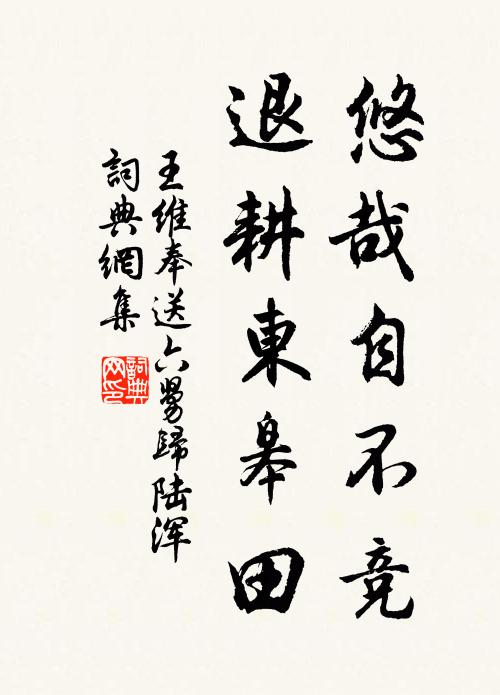 悠哉自不竞
退耕東皋田
王維奉送六舅歸陆浑
詞典網集
詞典網印